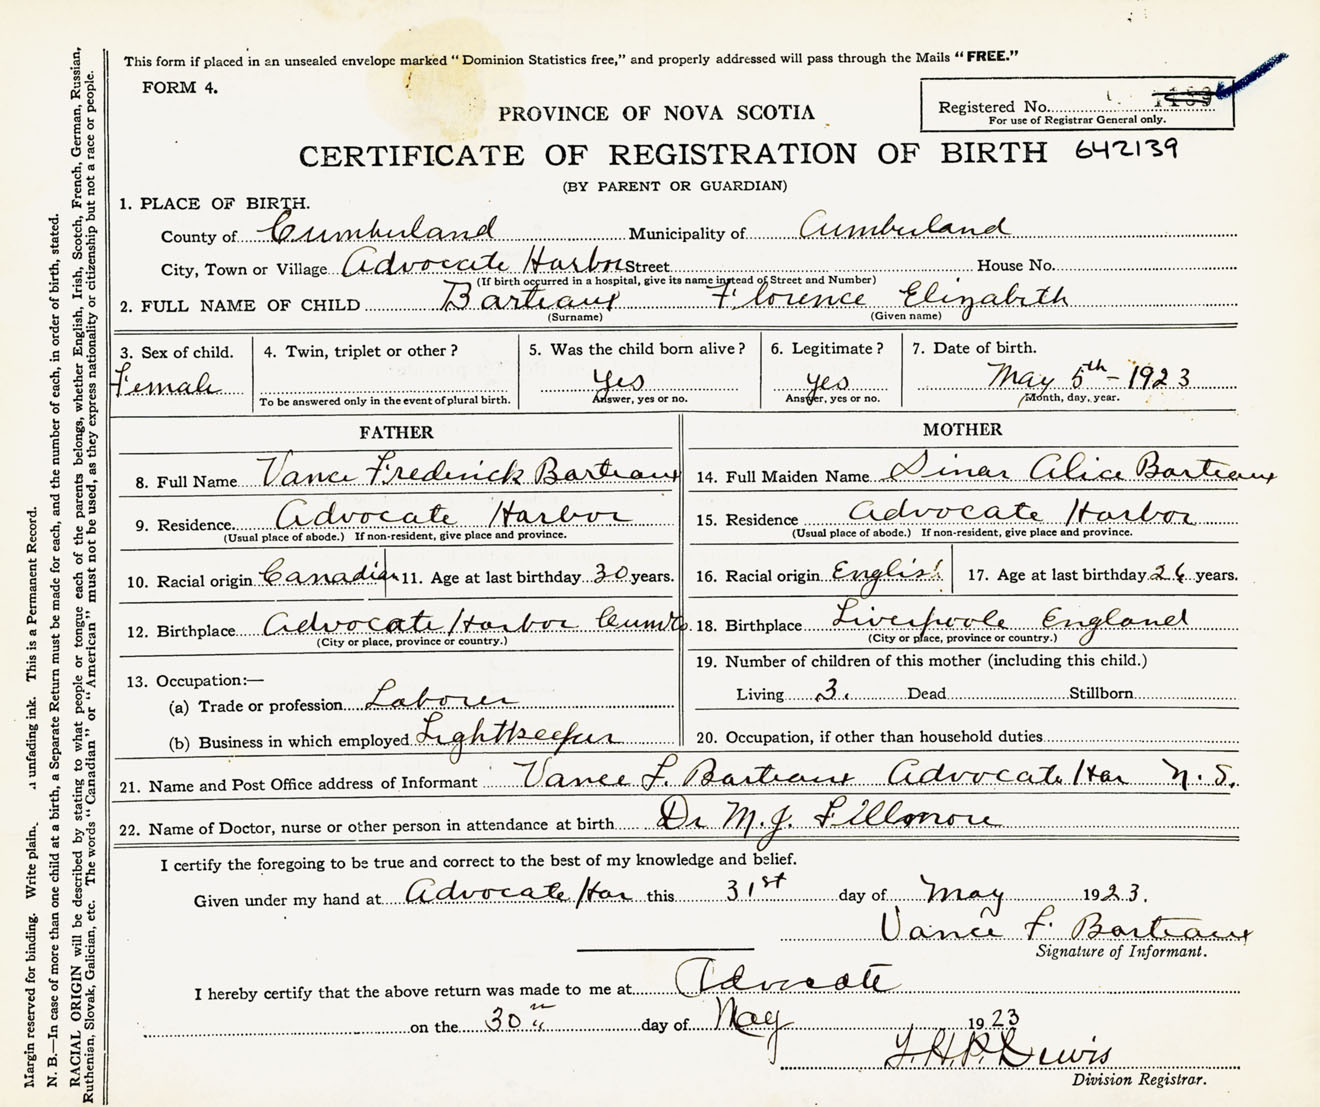 This form if placed in an unsealed envelope marked "Dominion Statistics free," and properly addressed will pass through the Mails "FREE."
FORM 4.
PROVINCE OF NOVA SCOTIA
Registered No.
For use of Registrar General only.
CERTIFICATE OF REGISTRATION OF BIRTH 642139
(BY PARENT OR GUARDIAN)
1. PLACE OF BIRTH.
County of Cumberland Municipality of Cumberland
City, Town or Village Advocate Harbor Street House No.
(If birth occurred in a hospital, give its name instead of Street and Number)
2. FULL NAME OF CHILD Barteaux Florence Elizabeth
(Surname) (Given name)
3. Sex of child. 4. Twin, triplet or other? 5. Was the child born alive? 6. Legitimate? 7. Date of birth.
Female Yes Yes May 5th - 1923
To be answered only in the event of plural birth. Answer, yes or no. Answer, yes or no. Month, day, year.
FATHER MOTHER
8. Full Name Vance Frederick Barteaux 14. Full Maiden Name Alice Barteaux
9. Residence. Advocate Harbor 15. Residence Advocate Harbor
(Usual place of abode.) If non-resident, give place and province. (Usual place of abode.) If non-resident, give place and province.
10. Racial origin Canadian 11. Age at last birthday 30 years. 16. Racial origin English 17. Age at last birthday 26 years.
12. Birthplace Advocate Harbor 18. Birthplace Liverpoole England
(City or place, province or country.) (City or place, province or country.)
13. Occupation:— 19. Number of children of this mother (including this child.)
(a) Trade or profession Laborer Living 3. Dead Stillborn
(b) Business in which employed Lightkeeper 20. Occupation, if other than household duties
21. Name and Post Office address of Informant Vance F. Barteaux Advocate Har N.S.
22. Name of Doctor, nurse or other person in attendance at birth Dr M.J. Fillmore
I certify the foregoing to be true and correct to the best of my knowledge and belief.
Given under my hand at Advocate Har this 31st day of May 1923.
Vance F. Barteaux
Signature of Informant.
I hereby certify that the above return was made to me at Advocate
on the 30 day of May 1923
Lewis
Division Registrar.
Margin reserved for binding. Write plain. unfading ink. This is a Permanent Record.
N. B.—In case of more than one child at a birth, a Separate Return must be made for each, and the number of each, in order of birth, stated.
RACIAL ORIGIN will be described by stating to what people or tongue each of the parents belongs, whether English, Irish, Scotch, French, German, Russian,
Ruthenian, Slovak, Galician, etc. The words "Canadian" or "American" must not be used, as they express nationality or citizenship but not a race or people.